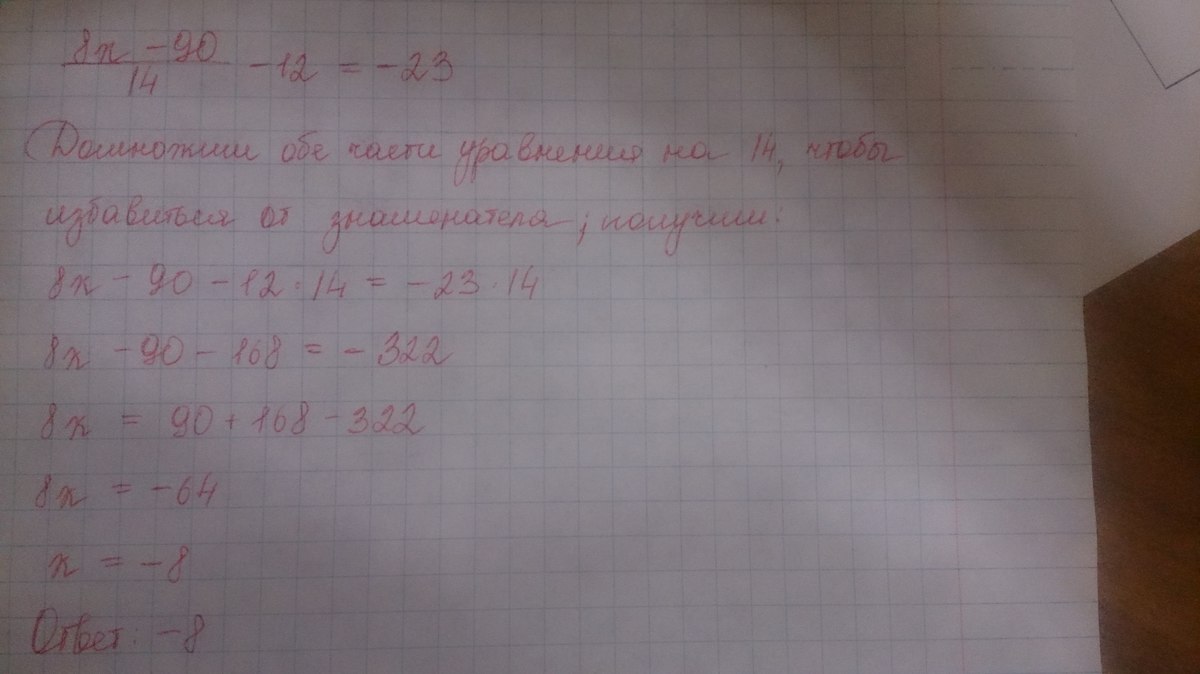 8x - 90
14
- 12 = - 23
Домножим обе части уравнения на 14, чтобы
избавиться от знаменателя; получим:
8x - 90 - 12 · 14 = - 23 · 14
8x - 90 - 168 = - 322
8x = 90 + 168 - 322
8x = - 64
x = - 8
Ответ: - 8